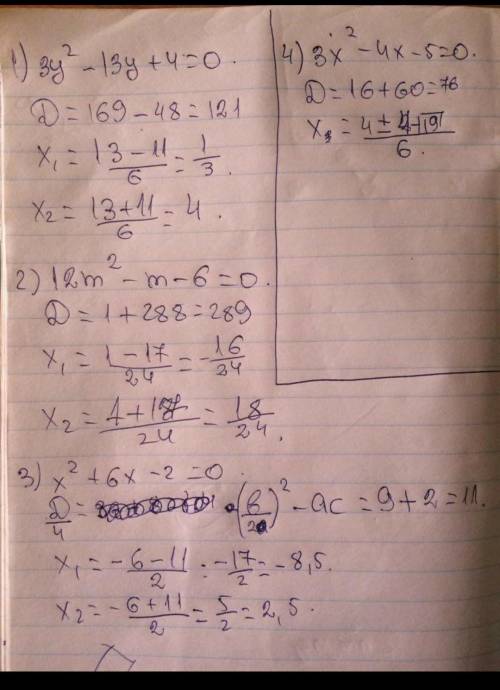 1) 3y² - 13y + 4 = 0.
D = 169 - 48 = 121
x₁ = (13 - 11)/6 = 1/3.
x₂ = (13 + 11)/6 = 4.
2) 12m² - m - 6 = 0.
D = 1 + 288 = 289
x₁ = (1 - 17)/24 = -16/24
x₂ = (1 + 17)/24 = 18/24.
3) x² + 6x - 2 = 0.
D/4 = (b/2)² - ac = 9 + 2 = 11.
x₁ = (-6 - 11)/2 = -17/2 = -8,5.
x₂ = (-6 + 11)/2 = 5/2 = 2,5.
4) 3x² - 4x - 5 = 0.
D = 16 + 60 = 76